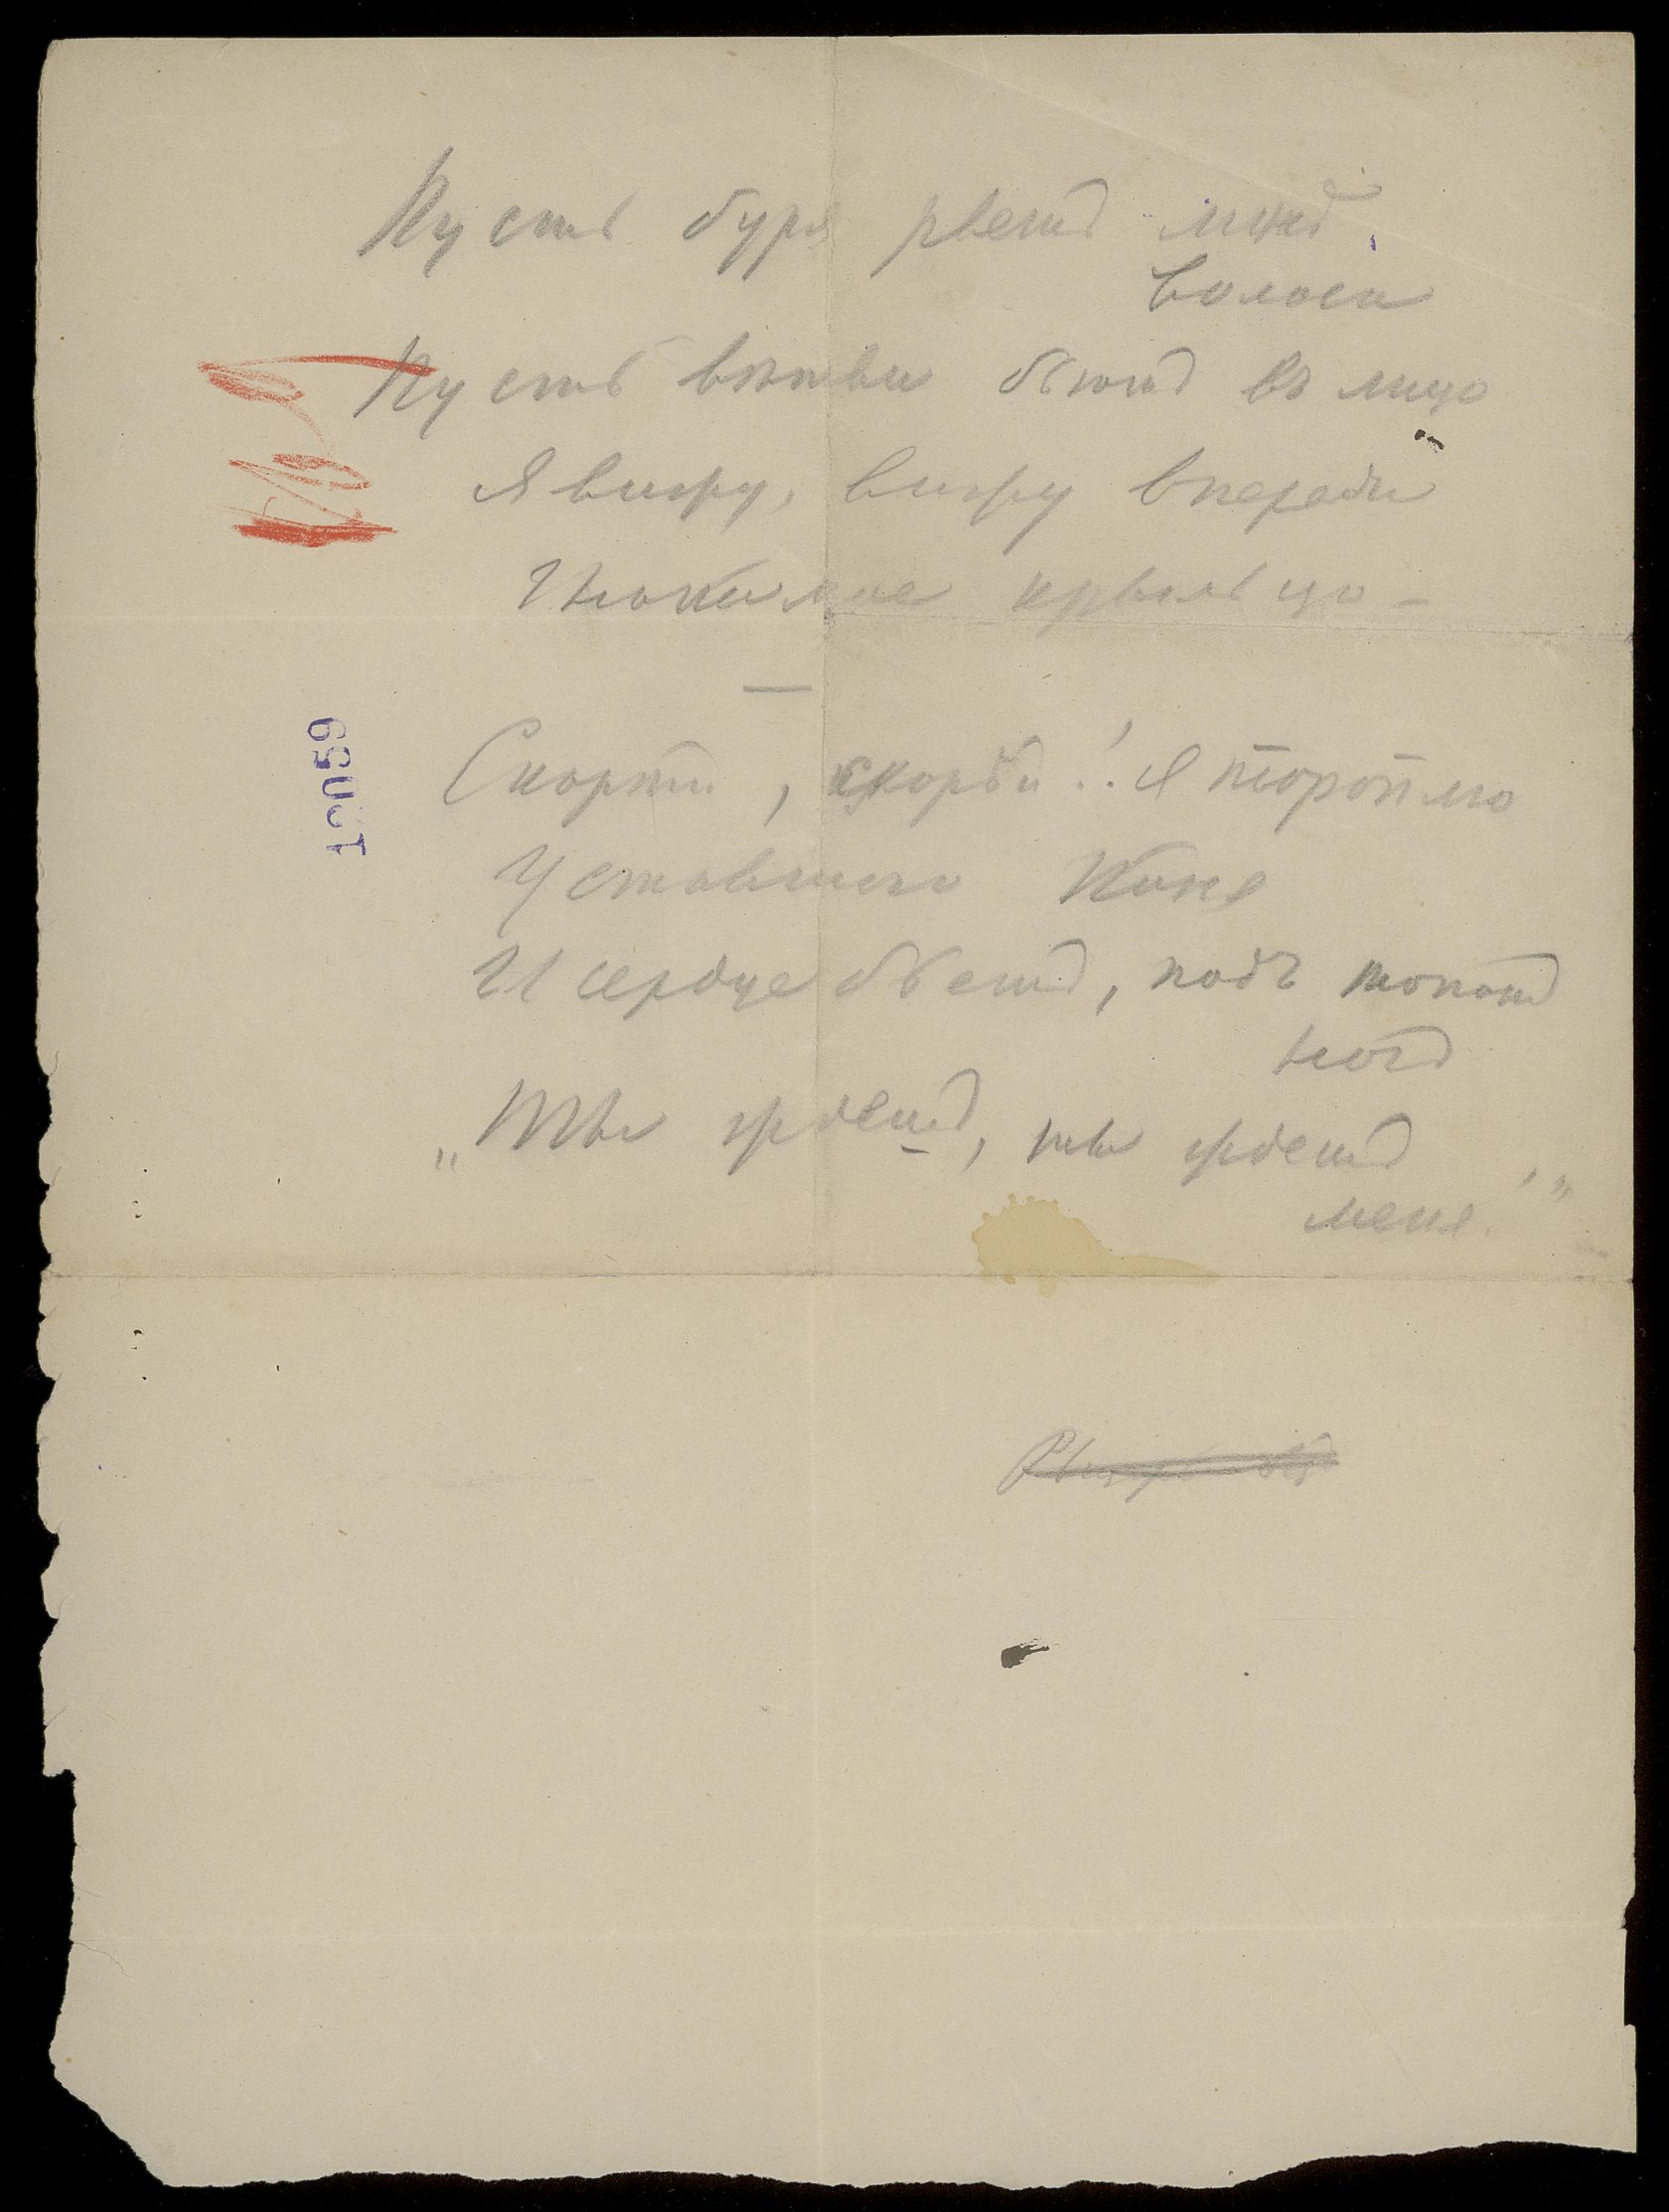 Пусть буря рветъ мнѣ
волоса
Пусть вѣтви бьютъ въ лицо
Я вижу, вижу впереди
Знакомое крыльцо –
—
Скорѣй, скорѣй! Я тороплю
Уставшаго Коня
И сердце бьетъ, подъ топотъ
ногъ
„Ты ждешъ, ты ждешъ
меня!"
12059